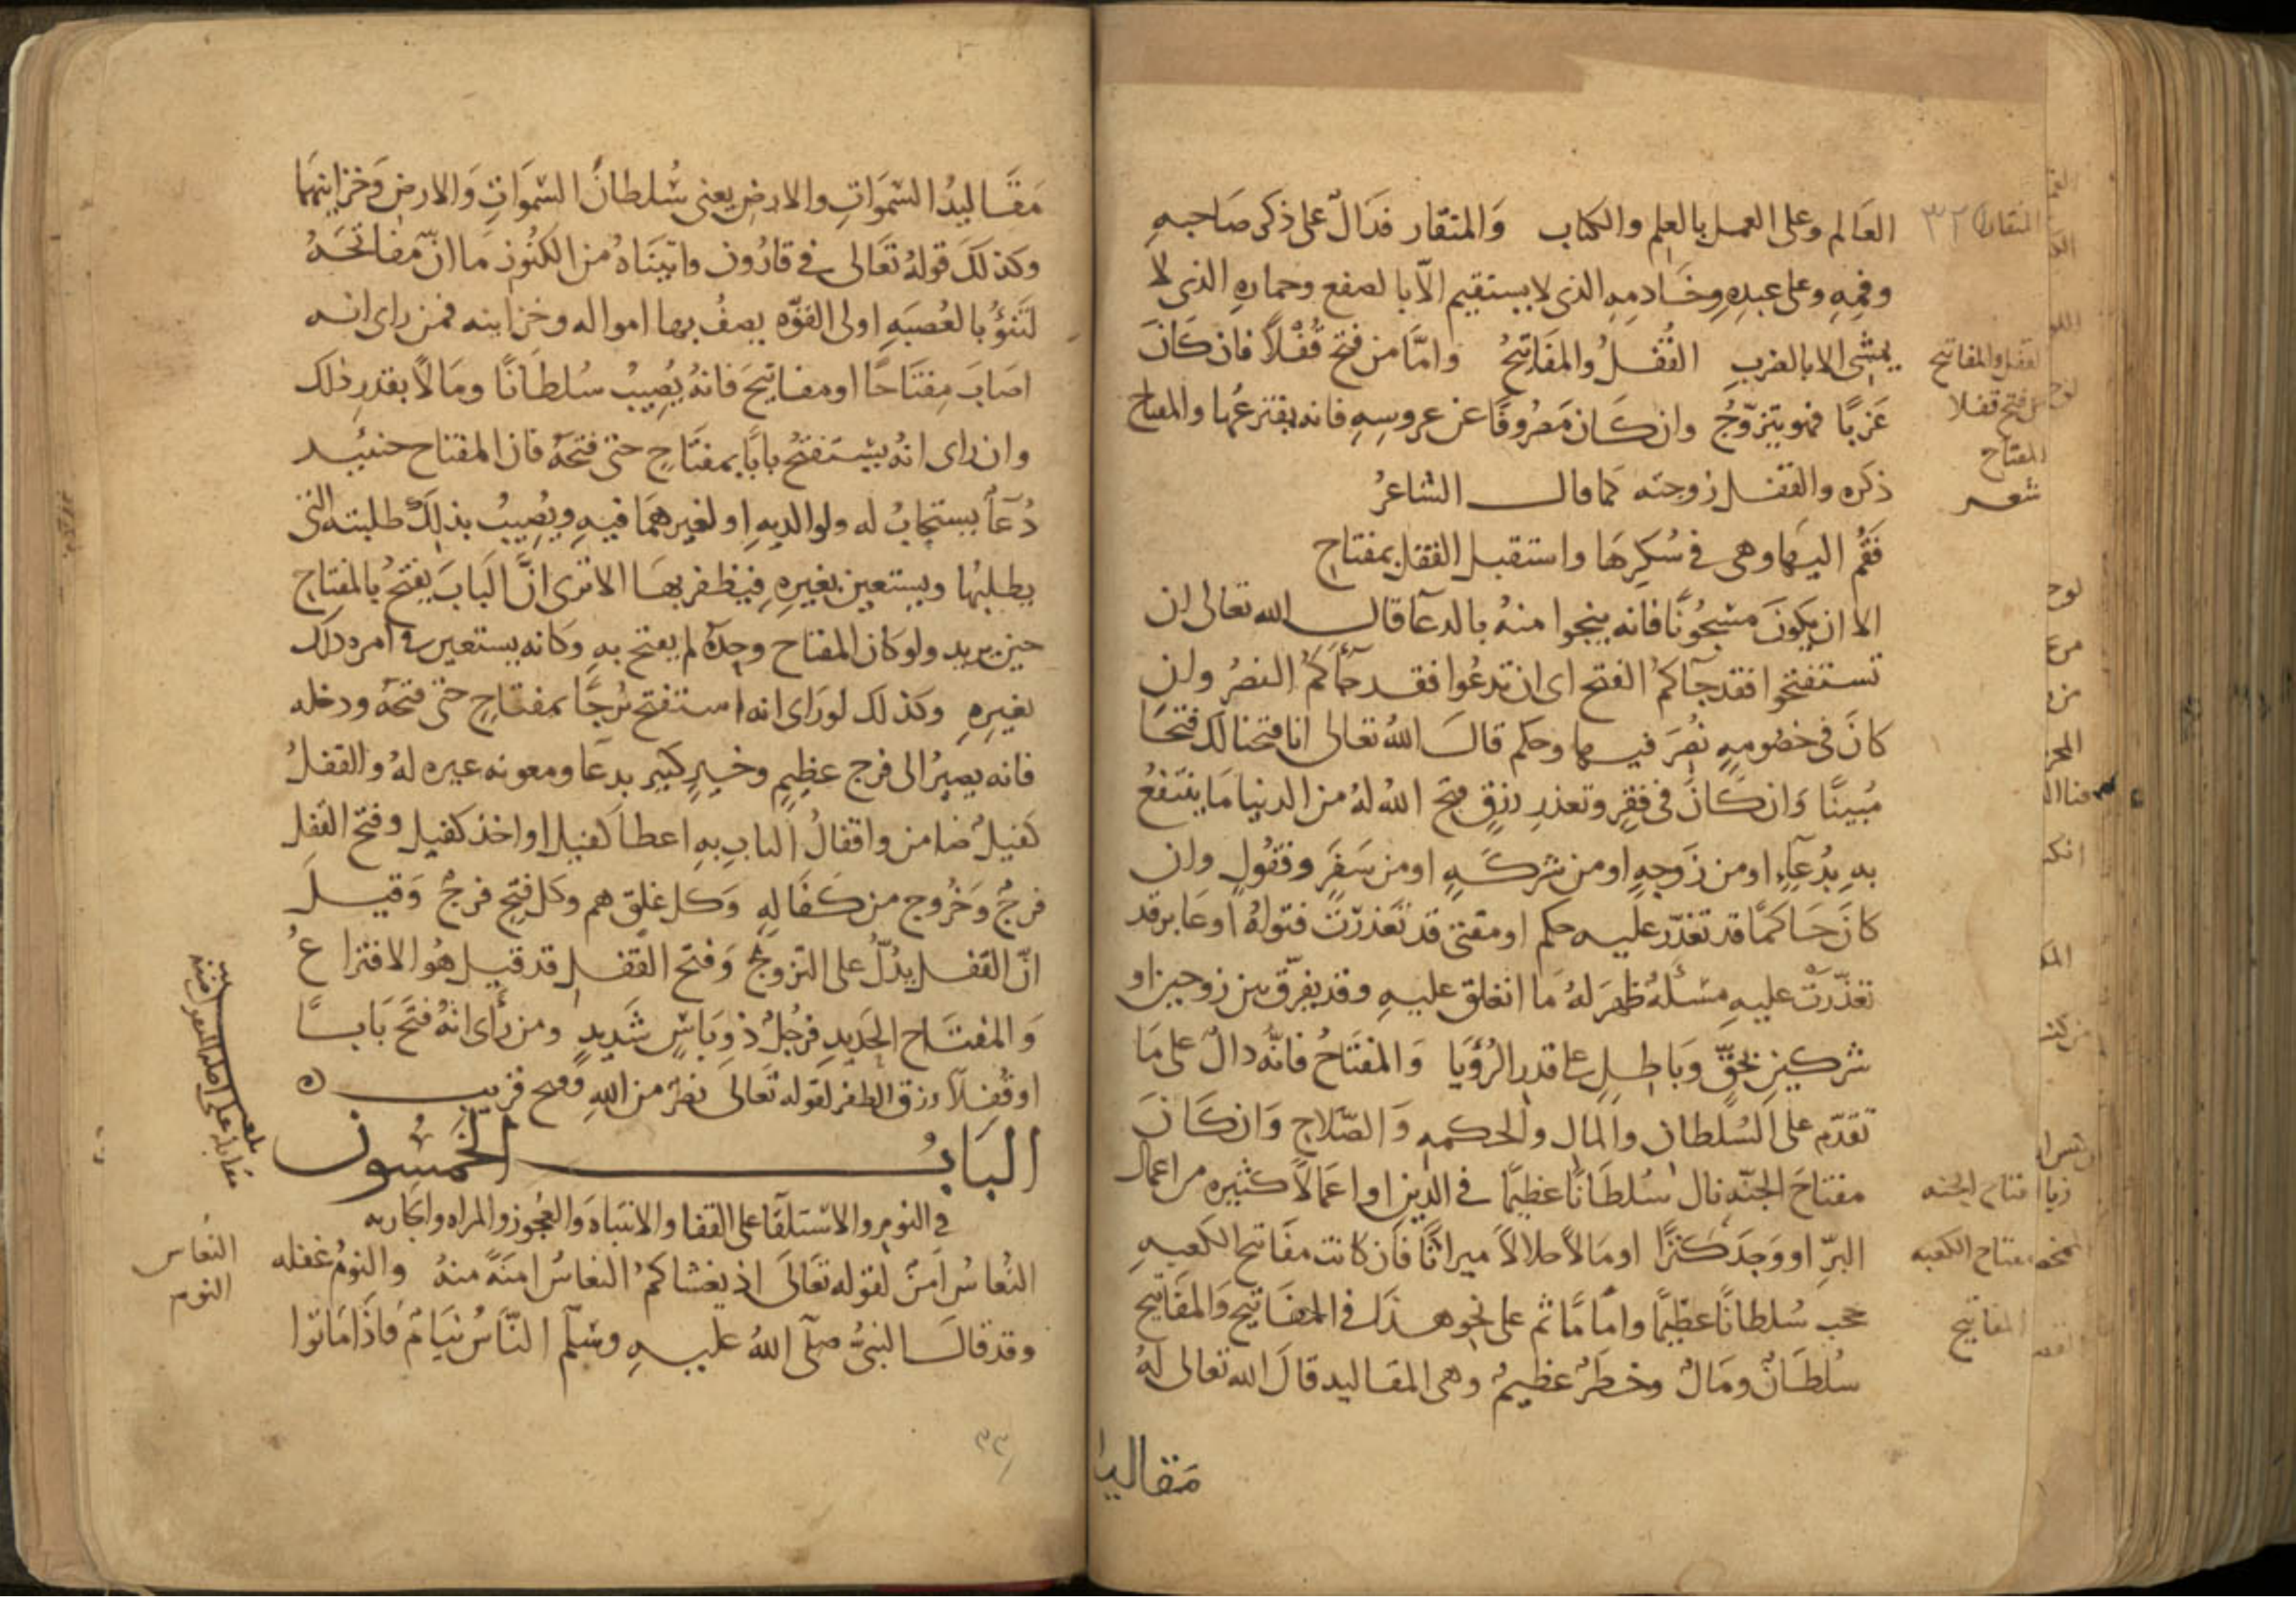 العَالم وعلى العمل بالعلم والكتاب وَالمنقار فدَالّ على ذكر صَاحبهِ
وفمِهِ وعلى عبدِهِ وخَادمِهِ الذى لا يستقيم الّا بالصفع وحمارِهِ الذى لا
يمشى الا بالضربِ القُفلُ والمفَاتيحُ وامَّا من فتح قُفْلًا فان كَانَ
عَزَبًا فهو يتزوّجُ وان كَان مَصْروفًا عن عروسِهِ فانه يفترعُها والمفتاح
ذكره والقفل زوجته كما قال الشاعرُ
فَقُم اليهَا وهى فى سُكرِهَا واستقبل القفل بمفتاح
الا ان يكونَ مَسْجُونًا فانه ينجوا منهُ بالدعآ قال الله تعالى ان
تستفتحوا فقد جآكمُ الفتح اى ان تدعُوا فقد جآكمُ النصرُ وان
كانَ فى خصُومهٍ نُصِرَ فيها وحكم قالَ اللهُ تعالى انا فتحنا لك فتحًا
مُبينًا وَان كَانَ فى فقرٍ وتعذرِ رزقٍ فتحَ اللهُ لهُ من الدنيا مَا ينتفعُ
بهِ بدُعآءٍ او من زَوجهٍ او من شركَهٍ او من سَفرٍ وقفُولٍ وان
كانَ حَاكمًا قد تعذّر عليه حكم او مفتى قد تَعَذرّت فتواهُ او عَابر قد
تعذّرَتْ عليهِ مسئلهٌ ظهرَ لهُ مَا انغلق عليهِ وقد يفرّق بين زوجين او
شركين بحَقٍّ وبَاطلٍ على قدرِ الرُؤيَا وَالمفتَاحُ فانّهُ دالٌ على مَا
تقدّم على السُلطان والمال والحكمهِ وَالصّلاحِ وَان كَانَ
مفتاحَ الجنّهِ نال سُلطَانًا عظيمًا فى الدين او اعمَالًا كثيره من اعمال
البرِّ او وَجدَ كَنزًا او مَالًا حلالًا ميراثًا فان كانت مفَاتيح الكعبهِ
حجب سُلطانًا عظيمًا وامَامًا ثم على نحو هذا فى المفَاتيح وَالمفَاتيحُ
سُلطَانٌ ومَالٌ وخطَرٌ عظيمٌ وهى المقاليد قالَ الله تعالى لهُ
مَقاليد
المنقار
٣٢
القفل والمفاتيح
من فتح قفلا
المفتاح
شعر
مفتاح الجنه
مفتاح الكعبه
المفاتيح
مَقَاليدُ السّموَاتِ والارضِ يعنى سُلطانَ السّموَاتِ وَالارضِ وَخزاينهَا
وكذلكَ قولهُ تعَالى فى قارُون واتينَاهُ من الكنُوزِ مَا انّ مفَاتحَهُ
لتَنؤُ بالعُصبَهِ اولى القوّه يصفُ بها امواله وخزاينه فمن راى انه
اصَابَ مِفتَاحًا او مفاتيحَ فانهُ يُصِيبُ سُلطَانًا ومَالًا بقدرِ ذلك
وان راى انهُ يسْتفتحُ بابًا بمفتَاحٍ حتى فتحَهُ فان المفتاح حينئيد
دُعَآ يستجابُ له ولوالديهِ او لغيرهمَا فيهِ ويُصِيبُ بذلكَ طلبته التى
يطلبُها ويستعين بغيرِهِ فيظفر بهَا الا ترى انَّ البَابَ يفتحُ بالمفتاح
حين يريد ولو كان المفتاح وحدَهُ لم يفتح بهِ وكانه يستعين فى امره ذلك
بغيرِهِ وكذلك لو رَاى انه استفتح بُرجًا بمفتاحٍ حتى فتحَهُ ودخله
فانه يصيرُ الى فرج عظيمٍ وخيرٍ كبيرٍ بدعَا ومعونه غيره لهُ والقفلُ
كفيلٌ ضامن واقفالُ البابِ بهِ اعطا كفيل او اخذ كفيل وفتح القفل
فرجٌ وَخرُوج من كفَالهٍ وَكل غلقٍ هم وكل فتحٍ فرجٌ وَقيلَ
انّ القفل يدُلُّ على التزوجُ وَفتح القفل قد قيل هُو الافتراعُ
وَالمفتَاح الحَديدِ فرَجُلٌ ذو بَاسٍ شَديدٍ ومن رَأى انهُ فتَحَ بَابًا
او قُفلًا رزق الظفر لقوله تَعَالَى نصرٌ من اللهِ وفتح قريب
البَابُ الخمسُون
فى النومِ والاسْتلقَا على القفا والانتباهَ وَالعَجُوز والمراه والجاريه
النُعاسُ اَمنٌ لقوله تعَالَى اذ يغشاكمُ النعاسُ امنَهً منهُ والنومُ غفله
وقد قالَ النبىُّ صلّى اللهُ عليهِ وسَلّم النّاسُ نيَامٌ فَاذَا مَاتوا
بلغ
مقابلة على
النعاس
النوم